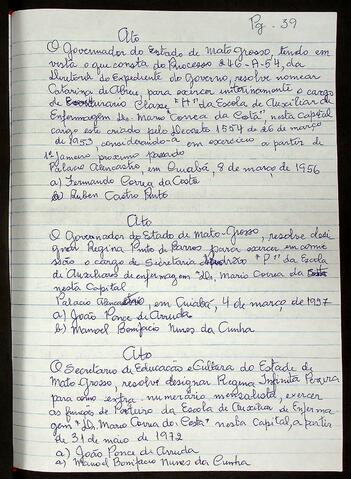 Pg. 39
Ato
O Governador do Estado de Mato Grosso, tendo em
vista o que consta do Processo 246-A-54, da
Diretoria do Expediente do Governo, resolve nomear
Catarina de Abreu, para exercer interinamente o cargo
de Escriturario Classe "H" da Escola de Auxiliar de
Enfermagem "Dr. Mario Correa da Costa", nesta Capital
cargo este criado pelo Decreto 1574 de 26 de março
de 1953, considerando-a em exercicio a partir de
1º janeiro proximo passado
Palacio Alencastro, em Cuiabá, 8 de março de 1956
a) Fernando Correa da Costa
b) Ruben Castro Pinto
Ato
O Governador do Estado de Mato-Grosso, resolve desi
gnar Regina Pinto de Barros para exercer em comi
ssão o cargo de Secretaria Padrão "P" da Escola
de Auxiliares de enfermagem "Dr. Mario Correa da Costa
nesta capital
Palacio Alencastro, em Cuiabá, 4 de março de 1957
a) João Ponce de Arruda
b) Manoel Bonifacio Nunes da Cunha
Ato
O Secretario de Educação e Cultura do Estado de
Mato-Grosso, resolve designar Regina Pereira
para como extra-numerário mensalista, exercer
as funções de Porteiro da Escola de Auxiliar de Enferma
gem "Dr. Mario Correa da Costa" nesta Capital, a partir
de 31 de maio de 1972
a) João Ponce de Arruda
a) Manoel Bonifacio Nunes da Cunha